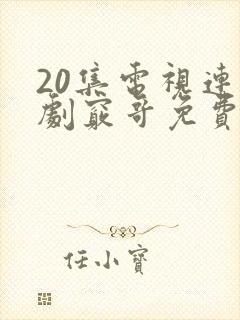 20集電視連
劇窮哥免費
任小寶